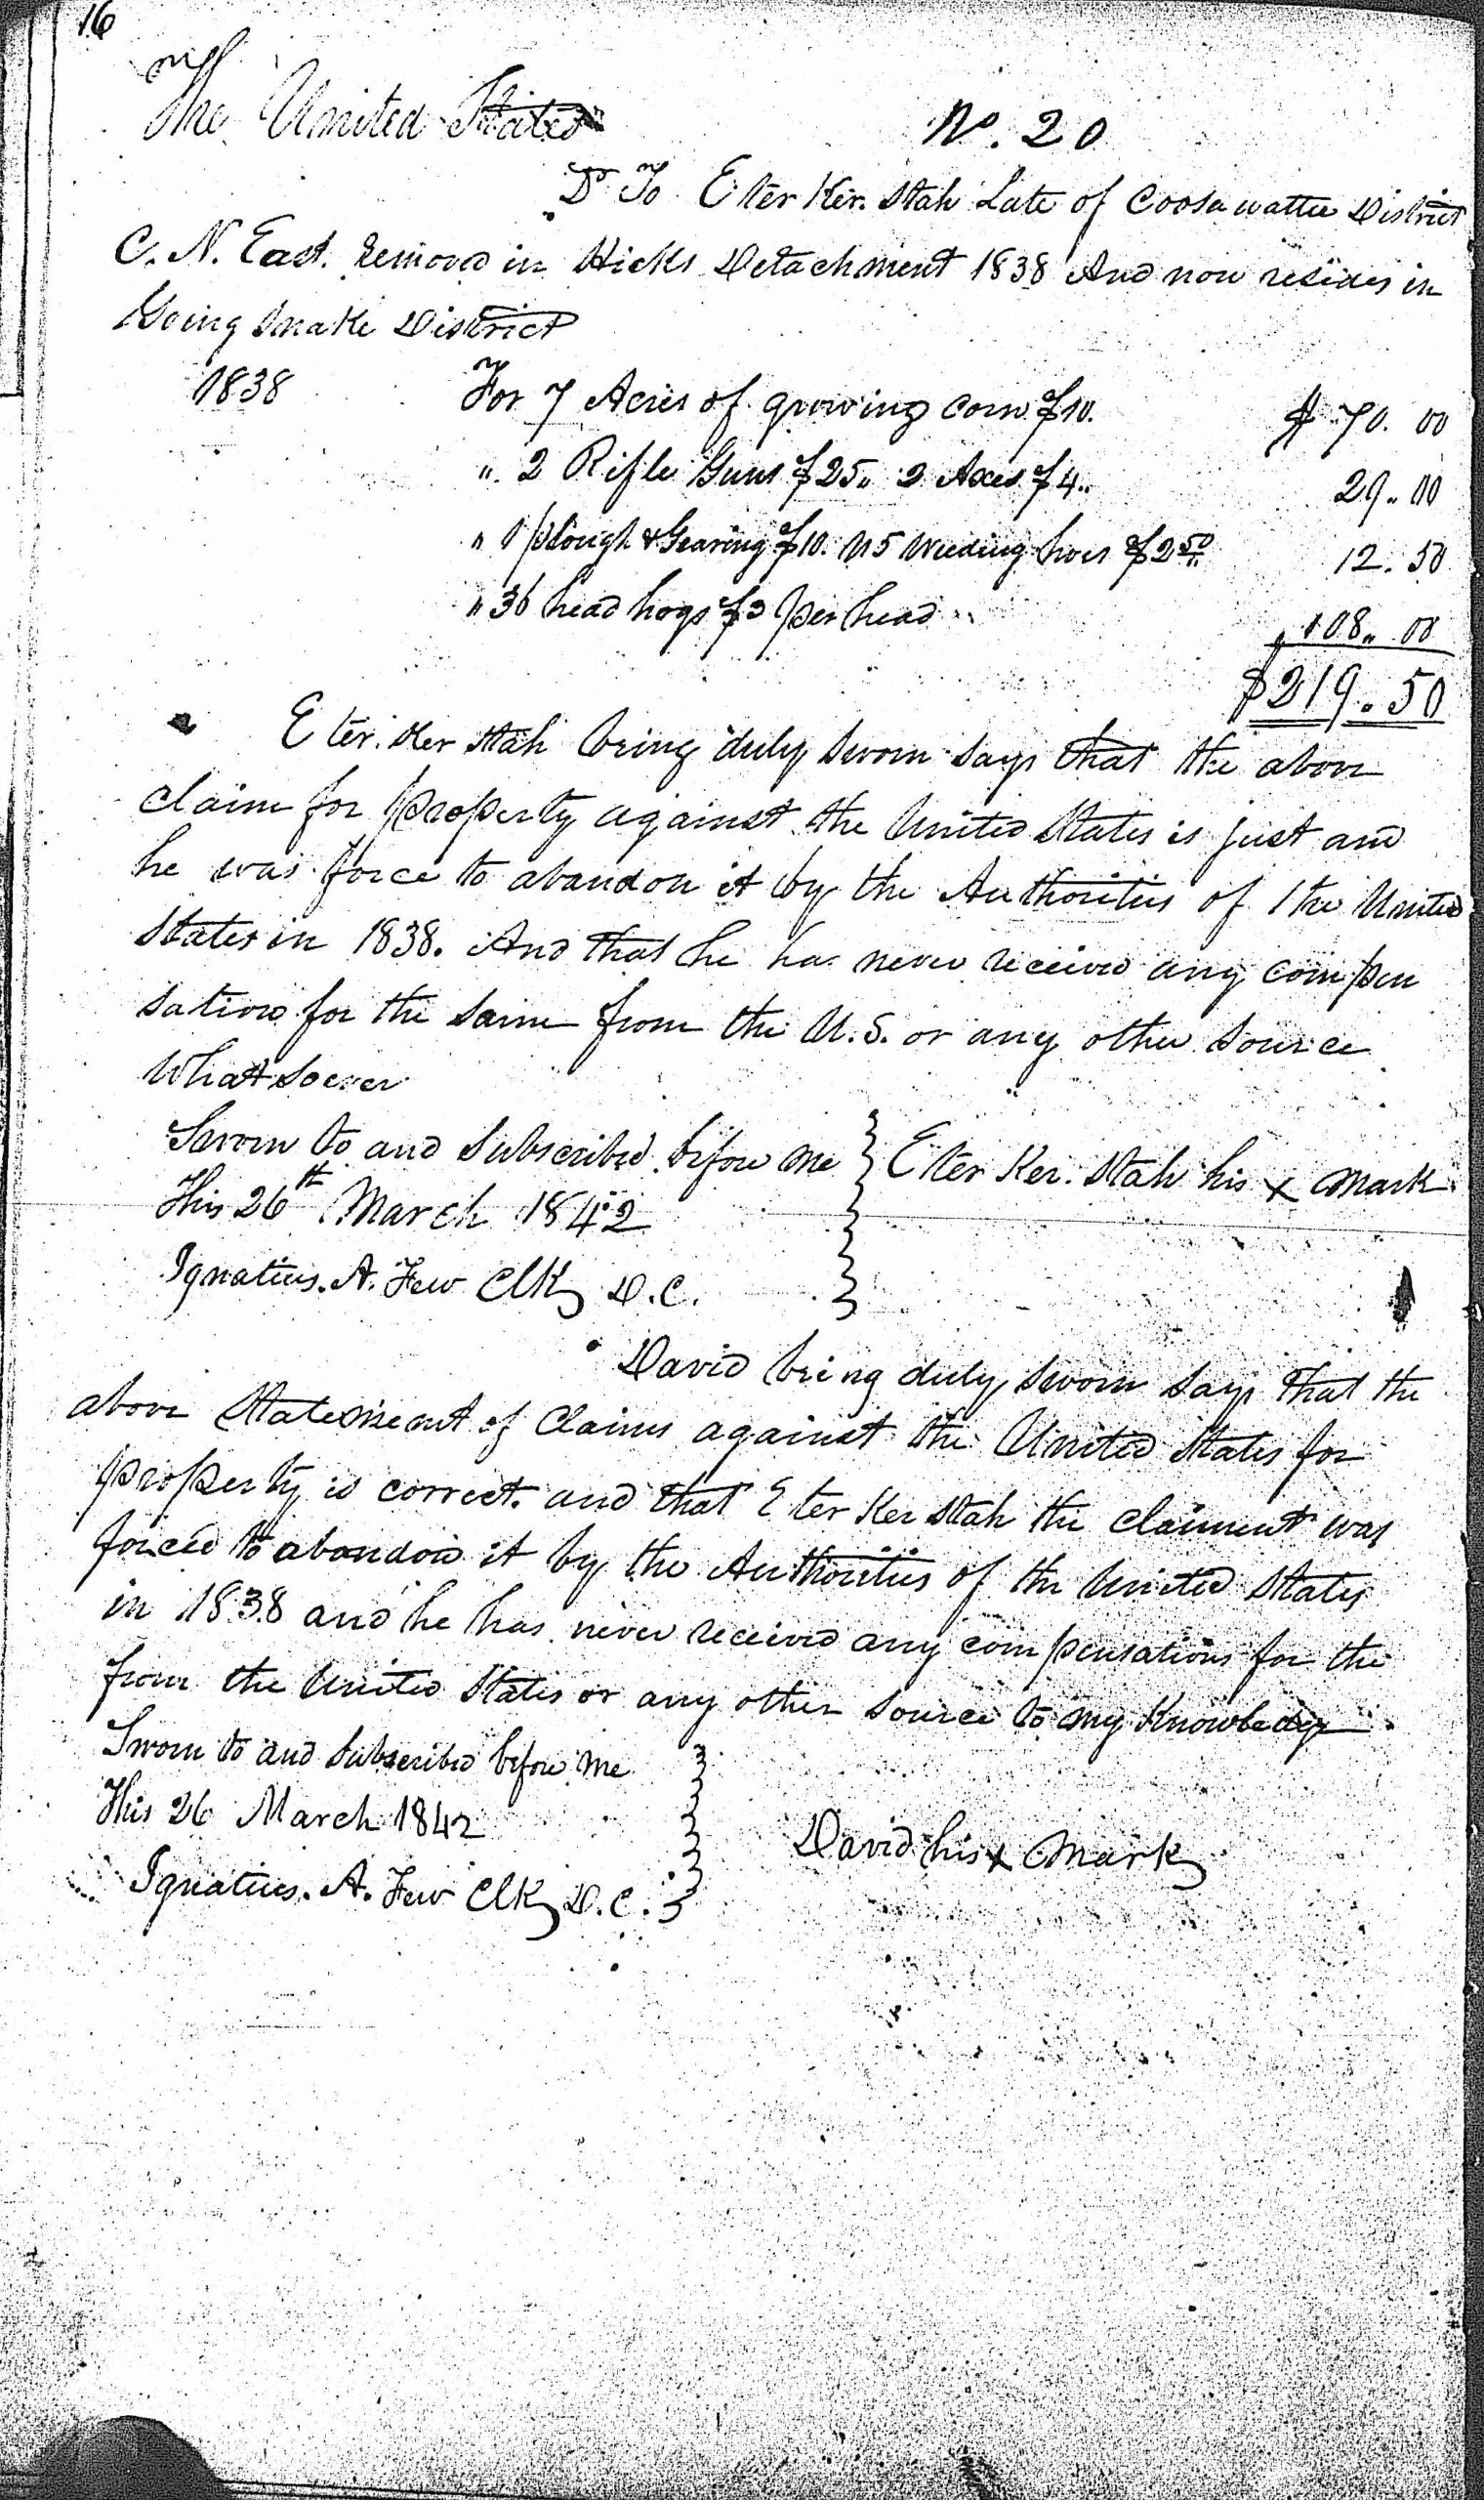 16
The United States
No. 20
Dr To Eter Ker. stah Late of Coosawattee District
C. N. East. Removd in Hicks Detachment 1838 And now resides in
Going Snake District
1838 For 7 Acres of growing corn $10. $70. 00
" 2 Rifle Guns $25„ 2 Axes $4„ 29„00
" 1 plough & Gearing $10. 5 Weeding hoes $2 50 12. 50
" 36 head hogs $3 per head 108„ 00
$219.50
Eter. Ker stah being duly sworn says that the above
claim for property against the United States is just and
he was force to abandon it by the Authorities of the United
States in 1838. And that he has never received any compen
sation for the same from the U.S. or any other source
Whatsoever
Sworn to and Subscribed before me } Eter Ker. stah his x mark
This 26th March 1842
Ignatius. A. Few Clk D.C.
David being duly sworn says that the
above Statement of Claims against the United States for
property is correct. and that Eter Ker stah the claiment was
forced to abandon it by the Authorities of the United States
in 1838 and he has never received any compensations for the
from the United States or any other source to my Knowledge
Sworn to and Subscribed before me
This 26 March 1842
David his x Mark
Ignatius. A. Few Clk D.C.